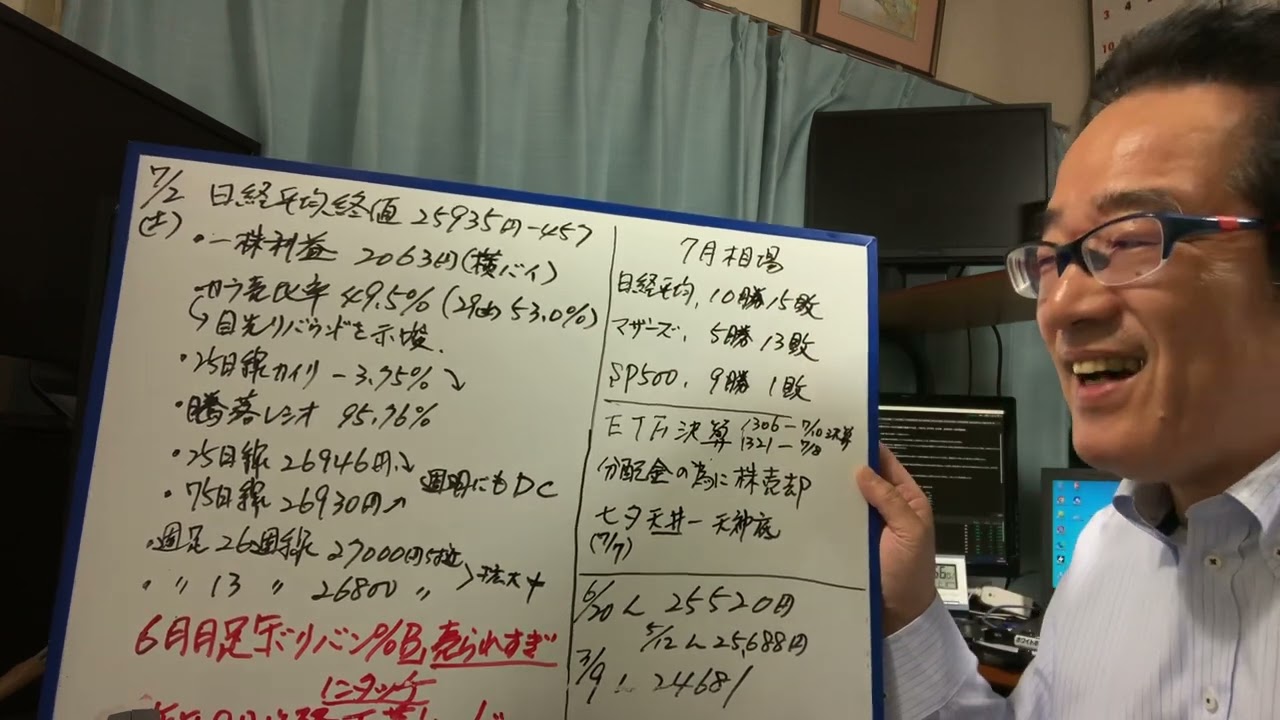 7/2 日経平均終値 25935円-457
(土)
・一株利益 2063円(横バイ)
・カラ売比率 49.5% (29日 53.0%)
↳目先リバウンドを示唆.
・25日線カイリ -3.75%↘
・騰落レシオ 95.76%
・25日線 26946円↘
・75日線 26930円↗
週明にもDC
・週足26週線 27000円
〃 〃 13 〃 26800 〃 拡大中
6月月足ボリバン%B,売られすぎ
にタッチ
7月相場
日経平均, 10勝15敗
マザーズ, 5勝13敗
SP500, 9勝1敗
ETF決算
1306-7/10決算
1321-7/8
分配金の為に株売却
七夕天井-天神底
(7/7)
6/20 25520円
5/12 25,688円
3/9 24681